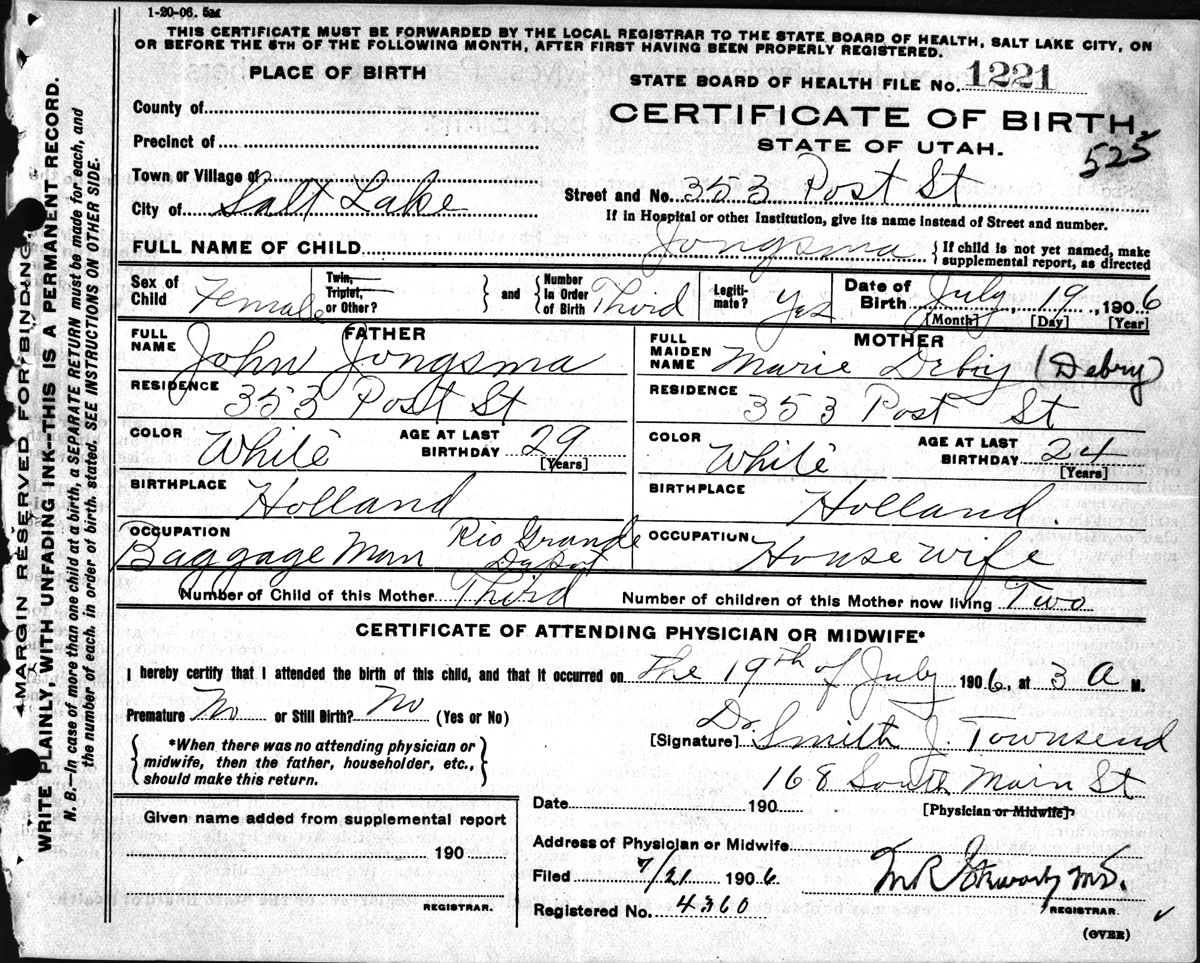 1-20-06. 5M
THIS CERTIFICATE MUST BE FORWARDED BY THE LOCAL REGISTRAR TO THE STATE BOARD OF HEALTH, SALT LAKE CITY, ON
OR BEFORE THE 5TH OF THE FOLLOWING MONTH, AFTER FIRST HAVING BEEN PROPERLY REGISTERED.
PLACE OF BIRTH
STATE BOARD OF HEALTH FILE No. 1221
County of
CERTIFICATE OF BIRTH.
Precinct of
STATE OF UTAH.
525
Town or Village of
Street and No. 353 Post St
City of Salt Lake
If in Hospital or other Institution, give its name instead of Street and number.
FULL NAME OF CHILD Jongsma { If child is not yet named, make
supplemental report, as directed
Sex of Child Female
Twin, Triplet, or Other? } and { Number In Order of Birth Third
Legiti-mate? Yes
Date of Birth July 19, 1906
[Month] [Day] [Year]
FATHER
FULL NAME John Jongsma
MOTHER
FULL MAIDEN NAME Marie Deboy (Debry)
RESIDENCE 353 Post St
RESIDENCE 353 Post St
COLOR White AGE AT LAST BIRTHDAY 29 [Years]
COLOR White AGE AT LAST BIRTHDAY 24 [Years]
BIRTHPLACE Holland
BIRTHPLACE Holland.
OCCUPATION Baggage Man Rio Grande Depot
OCCUPATION House wife
Number of Child of this Mother Third Number of children of this Mother now living Two
CERTIFICATE OF ATTENDING PHYSICIAN OR MIDWIFE*
I hereby certify that I attended the birth of this child, and that it occurred on the 19th of July 1906, at 3 A M.
Premature No or Still Birth? No (Yes or No)
{ *When there was no attending physician or
midwife, then the father, householder, etc.,
should make this return. }
[Signature] Dr. Smith J. Townsend
168 South Main St
Date 190
[Physician or Midwife]
Given name added from supplemental report
190
REGISTRAR.
Address of Physician or Midwife
Filed 7/21 1906
M.D.
REGISTRAR.
Registered No. 4360
(OVER)
MARGIN RESERVED FOR BINDING.
WRITE PLAINLY, WITH UNFADING INK--THIS IS A PERMANENT RECORD.
N. B.--In case of more than one child at a birth, a SEPARATE RETURN must be made for each, and
the number of each, in order of birth, stated. SEE INSTRUCTIONS ON OTHER SIDE.